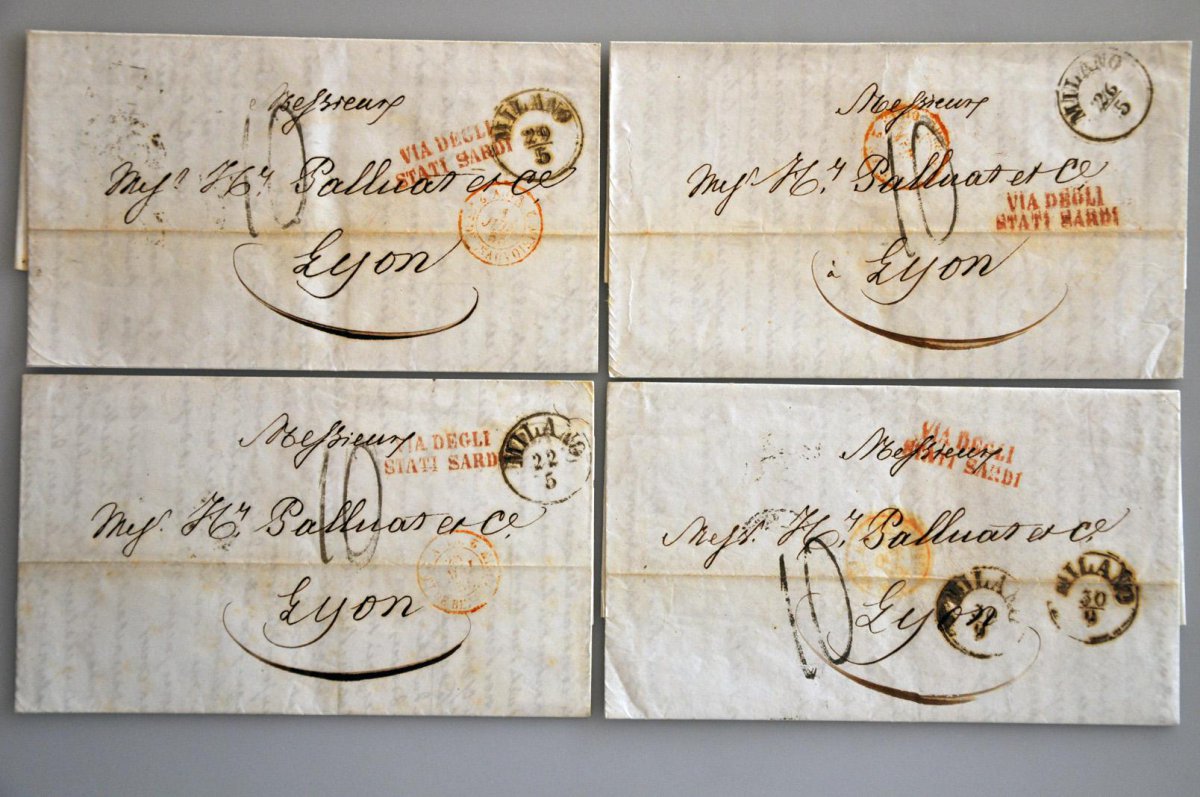 Messieurs
10
MILANO
29
5
VIA DEGLI
STATI SARDI
Mess. Hy Palluat et Ce.
Lyon
Messieurs
10
MILANO
26
5
Mess. Hy Palluat et Ce.
VIA DEGLI
STATI SARDI
à Lyon
Messieurs
10
VIA DEGLI
STATI SARDI
MILANO
22
5
Mess. Hy Palluat et Ce.
Lyon
VIA DEGLI
STATI SARDI
Messieurs
Mess. Hy Palluat et Ce.
10
Lyon
MILANO
MILANO
30
9